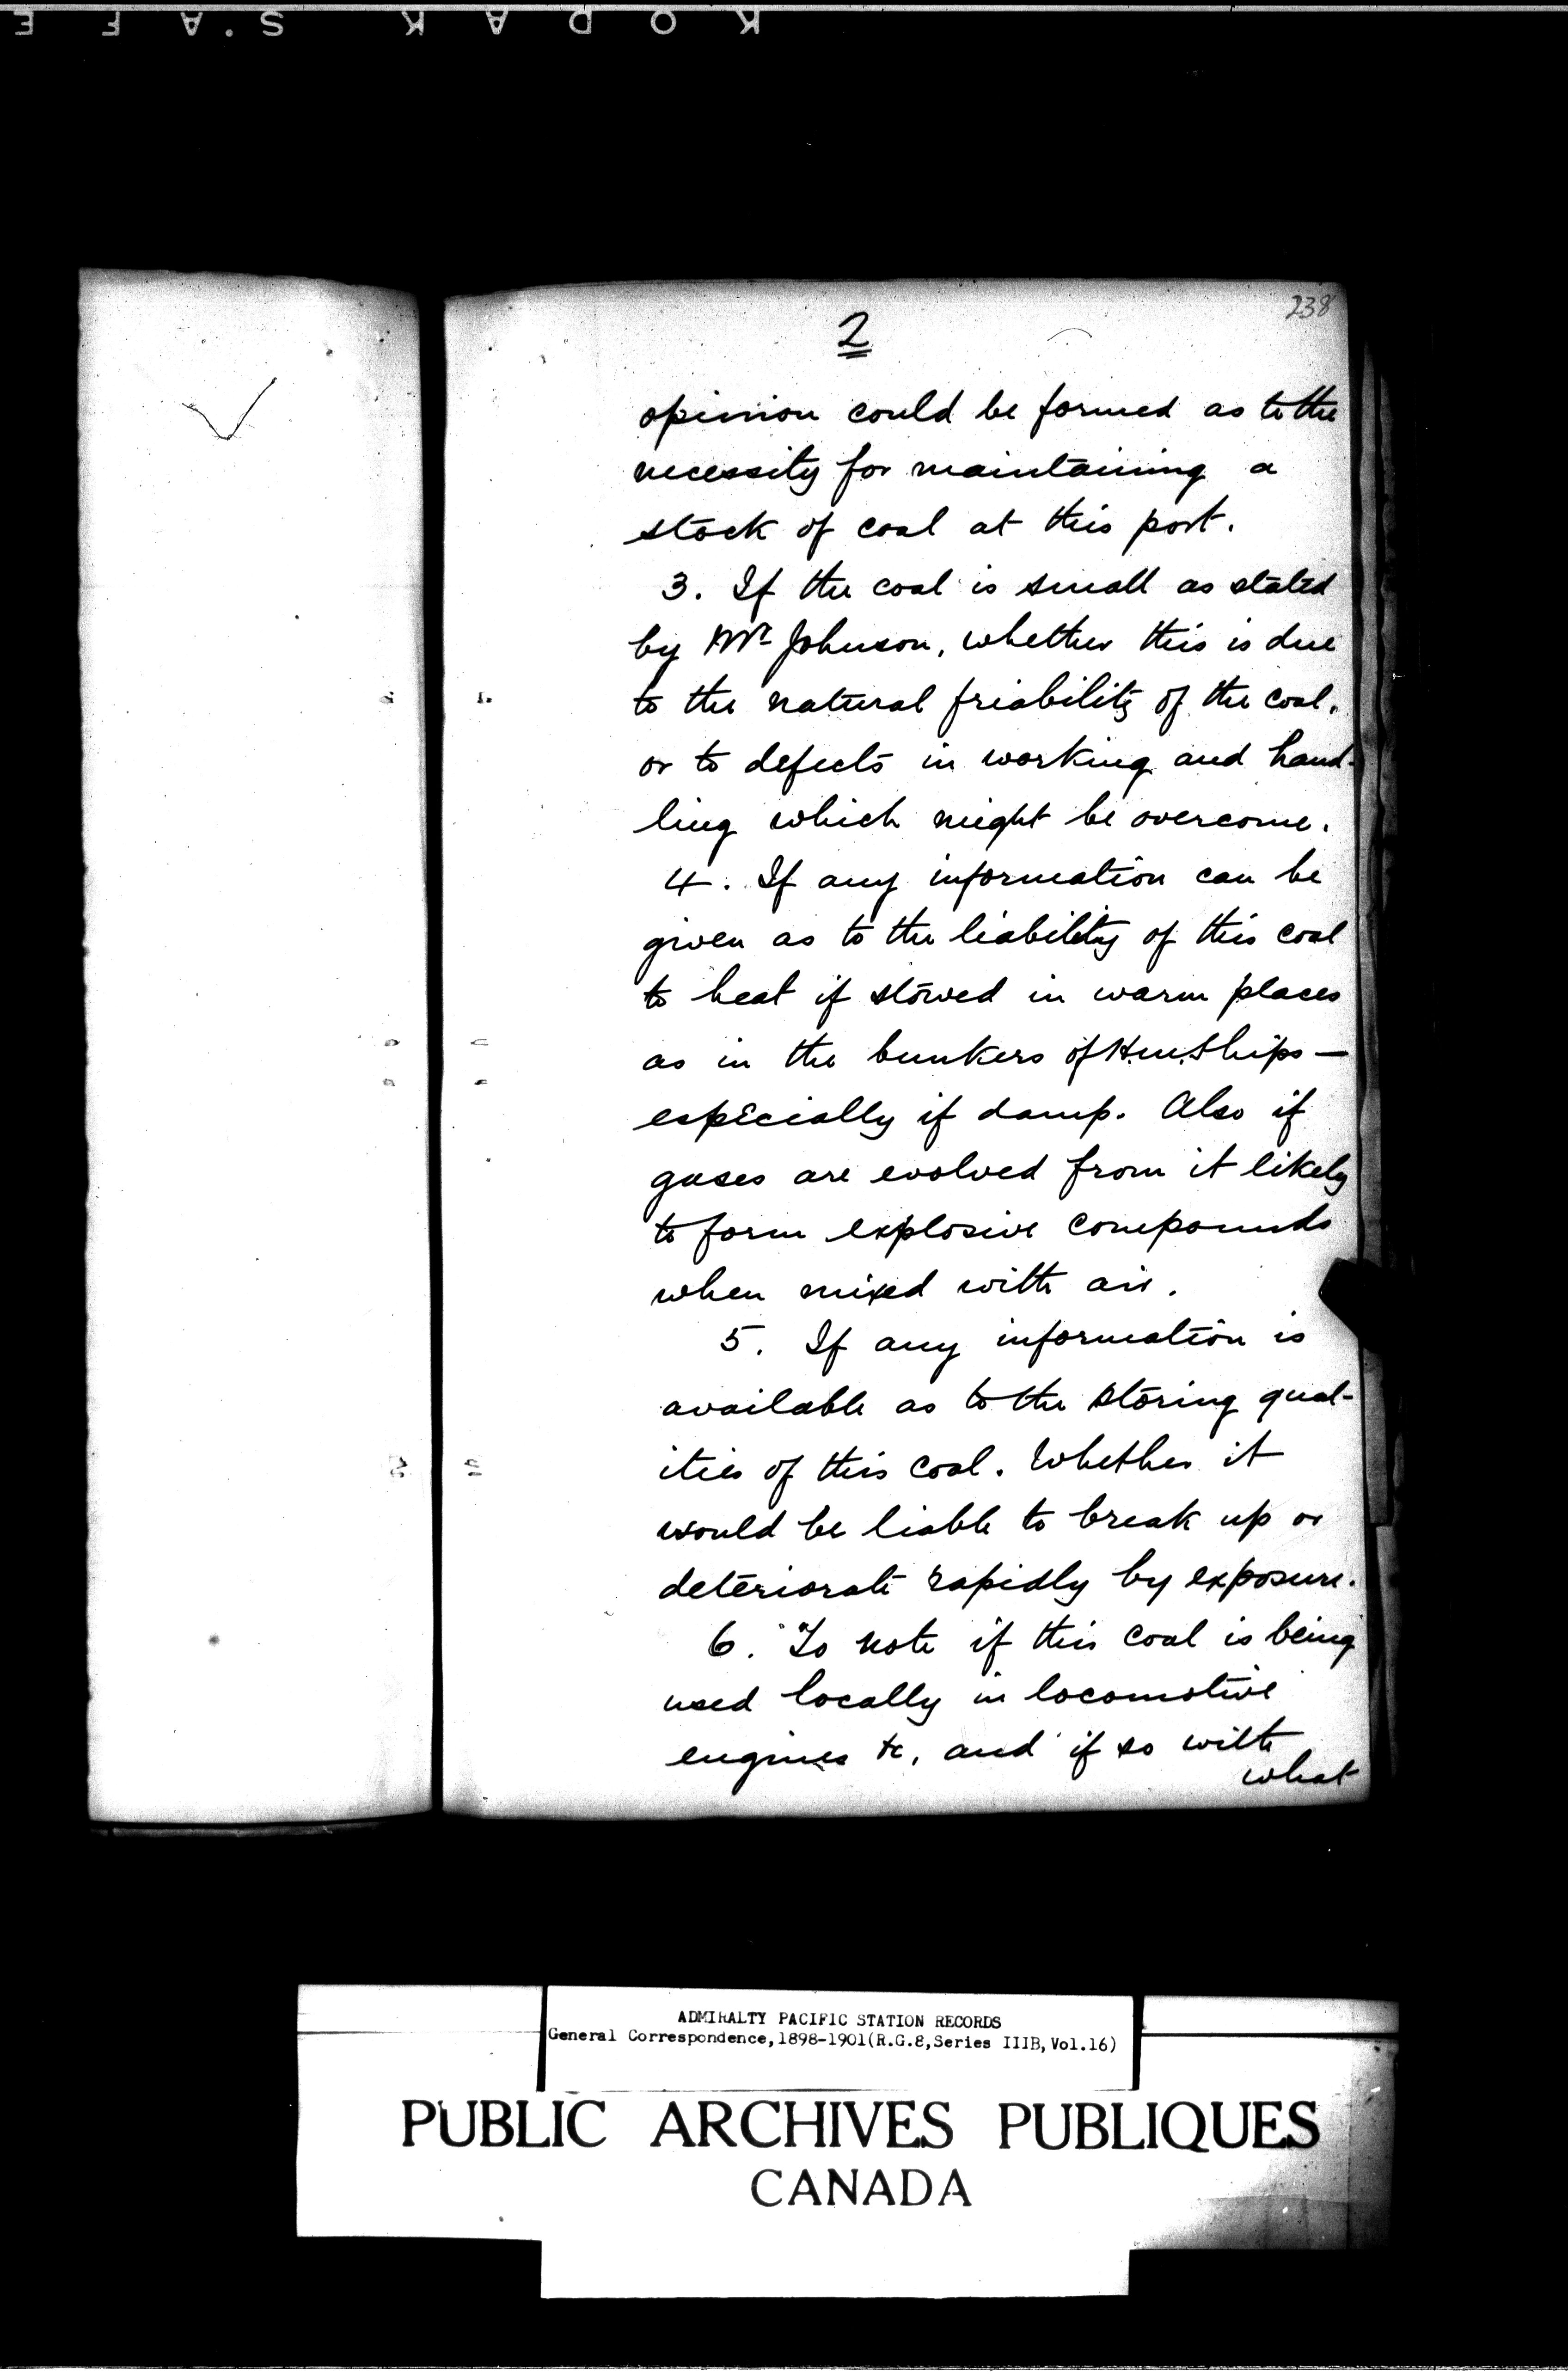 KODAK S.A F E
238
2
opinion could be formed as to the
necessity for maintaining a
stock of coal at this port.
3. If the coal is small as stated
by Mr Johnson, whether this is due
to the natural friability of the coal,
or to defects in working and hand-
ling which might be overcome.
4. If any information can be
given as to the liability of this coal
to heat if stowed in warm places
as in the bunkers of H.M. Ships —
especially if damp. Also if
gases are evolved from it likely
to form explosive compounds
when mixed with air.
5. If any information is
available as to the storing qual-
ities of this coal. Whether it
would be liable to break up or
deteriorate rapidly by exposure.
6. To note if this coal is being
used locally in locomotive
engines &c, and if so with
what
ADMIRALTY PACIFIC STATION RECORDS
General Correspondence,1898-1901(R.G.8,Series IIIB,Vol.16)
PUBLIC ARCHIVES PUBLIQUES
CANADA